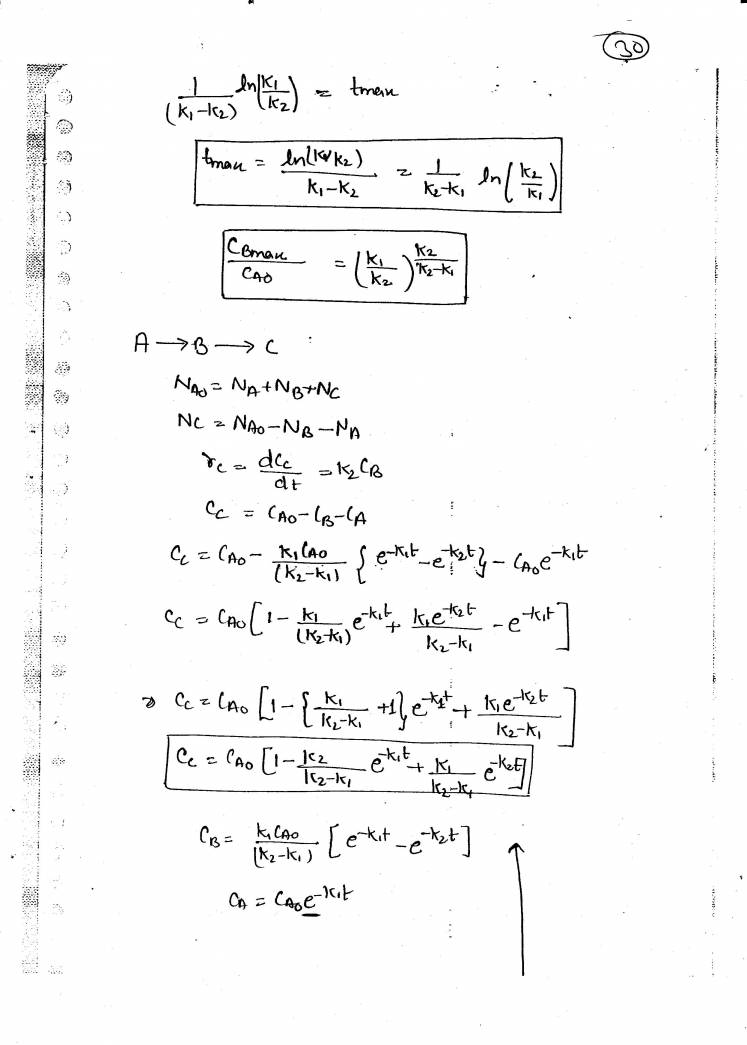 30
1/(K1-K2) ln(K1/K2) = tmax
tmax = ln(K1/K2)/(K1-K2) = 1/(K2-K1) ln(K2/K1)
CBmax/CA0 = (K1/K2)^(K2/(K2-K1))
A → B → C :
NA0 = NA+NB+NC
NC = NA0-NB-NA
rc = dCc/dt = K2CB
Cc = CA0-CB-CA
Cc = CA0 - K1CA0/(K2-K1) {e^-K1t - e^-K2t} - CA0e^-K1t
Cc = CA0 [1 - K1/(K2-K1) e^-K1t + K1e^-K2t/(K2-K1) - e^-K1t]
⇒ Cc = CA0 [1 - {K1/(K2-K1) +1} e^-K1t + K1e^-K2t/(K2-K1)]
Cc = CA0 [1 - K2/(K2-K1) e^-K1t + K1/(K2-K1) e^-K2t]
CB = K1CA0/(K2-K1) [e^-K1t - e^-K2t]
CA = CA0e^-K1t